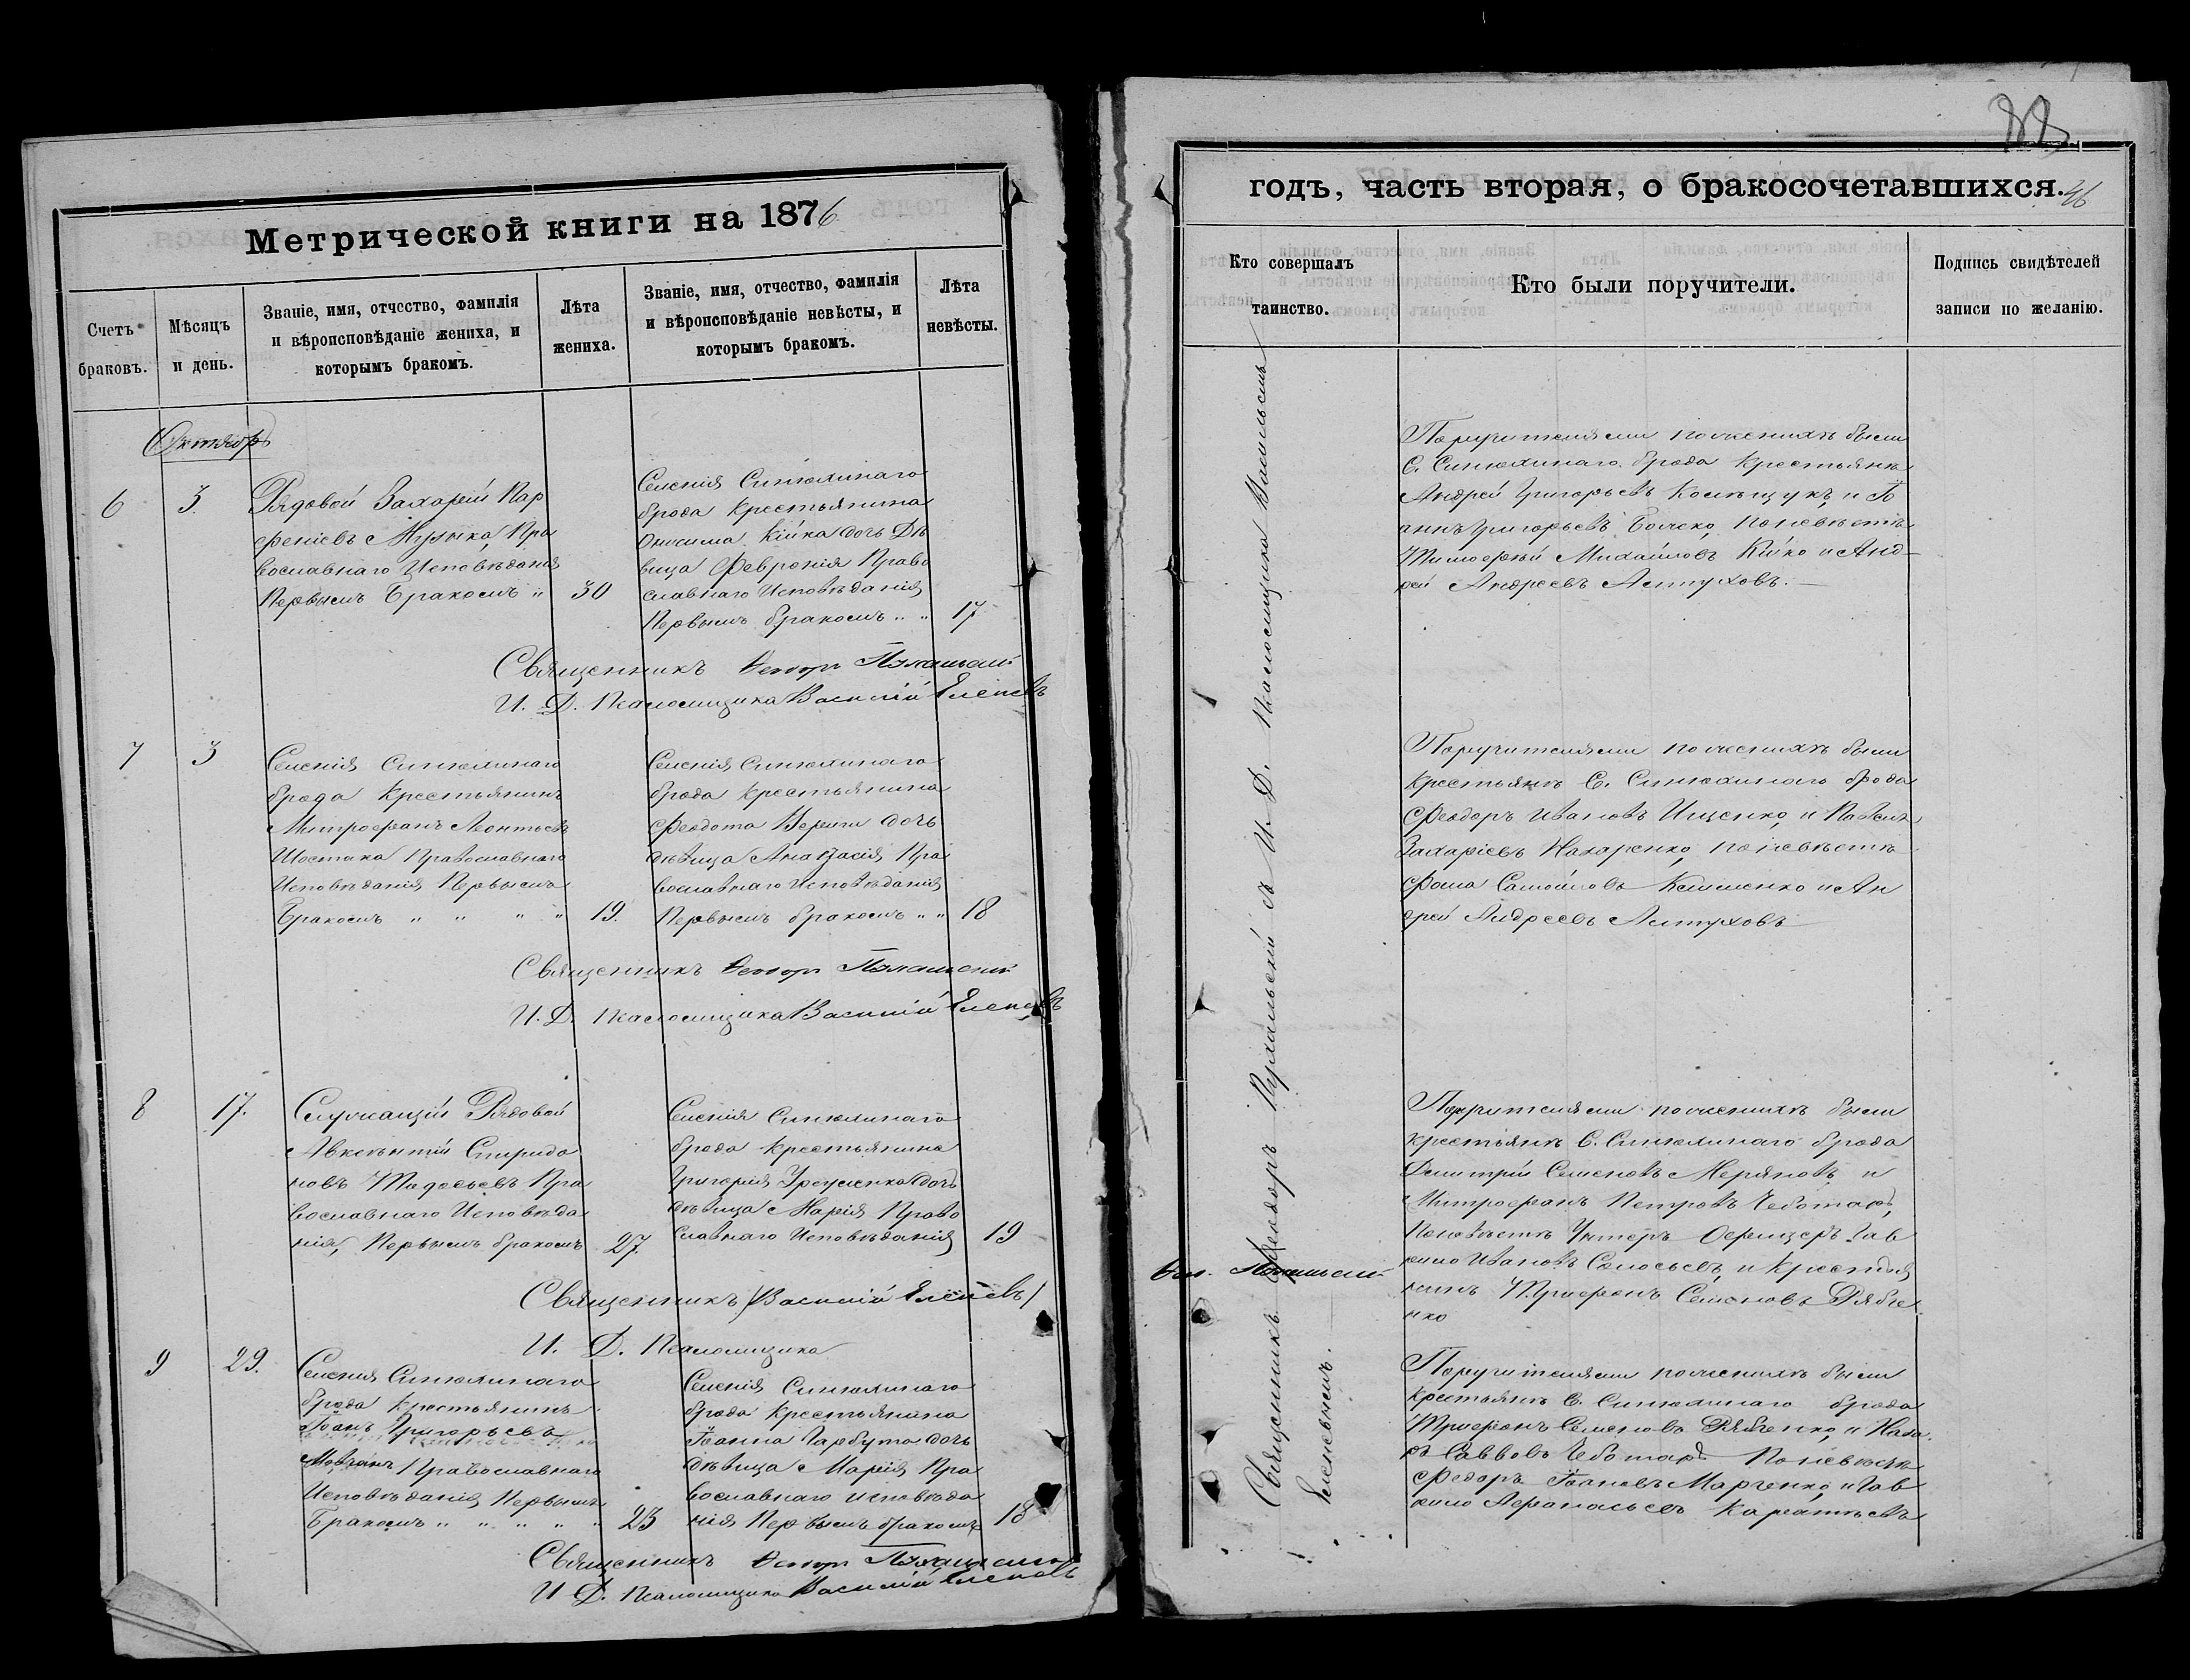 Метрической книги на 1876
Счетъ браковъ.
Мѣсяцъ и день.
Званіе, имя, отчество, фамилія
и вѣроисповѣданіе жениха, и
которымъ бракомъ.
Лѣта
жениха.
Званіе, имя, отчество, фамилія
и вѣроисповѣданіе невѣсты, и
которымъ бракомъ.
Лѣта
невѣсты.
Октябрь
6
3.
Рядовой Захарій Пар
феніевъ Музыка, Пра
вославнаго Исповѣданія
Первымъ Бракомъ "
30
Селенія Синюхинаго
брода крестьянина
Онисима Кійка дочь Дѣ
вица Февронія Право
славнаго Исповѣданія
Первымъ бракомъ " "
17
Священникъ Ѳеодоръ
И. Д. Псаломщика Василій Еленевъ
7
3
Селенія Синюхинаго
брода Крестьянинъ
Митрофанъ Леонтьевъ
Шостака Православнаго
Исповѣданія Первымъ
Бракомъ " " " "
19.
Селенія Синюхинаго
брода крестьянина
Феодота Вереты дочь
дѣвица Анастасія Пра
вославнаго Исповѣданія
Первымъ бракомъ " "
18
Священникъ Ѳеодоръ
И. Д. Псаломщика Василій Еленевъ
8
17.
Служащій Рядовой
Авксентій Спиридо
новъ Тадосьевъ Пра
вославнаго Исповѣда
нія, Первымъ бракомъ
27.
Селенія Синюхинаго
брода крестьянина
Григорія дочь
дѣвица Марія Право
славнаго Исповѣданія
19
Священникъ /Василій Еленевъ/
И. Д. Псаломщика
9
29.
Селенія Синюхинаго
брода крестьянинъ
Іоанъ Григорьевъ
Мовчанъ Православнаго
Исповѣданія Первымъ
Бракомъ " " " " "
23
Селенія Синюхинаго
брода Крестьянина
Іоанна Гарбута дочь
дѣвица Марія Пра
вославнаго исповѣда
нія Первымъ бракомъ
18
Священникъ Ѳеодоръ
И. Д. Псаломщика Василій Еленевъ
88
годъ, часть вторая, о бракосочетавшихся.
46
Кто совершалъ
таинство.
Кто были поручители.
Подпись свидѣтелей
записи по желанію.
Священникъ Феодоръ съ И. Д. Псаломщика Василіемъ
Еленевымъ.
Поручителями по женихѣ были
С. Синюхинаго брода крестьяне
Андрей Григорьевъ и Іо
аннъ Григорьевъ Бойко, по невѣстѣ
Тимофей Михайловъ Кійко и Анд-
рей Андреевъ Алтуховъ.
Поручителями по женихѣ были
крестьяне С. Синюхинаго брода
Феодоръ Ивановъ Ищенко, и Павелъ
Захаріевъ Назаренко, по невѣстѣ
Фома Самойловъ Клименко и Ан
дрей Андреевъ Алтуховъ
Поручителями по женихѣ были
крестьяне С. Синюхинаго брода
Дмитрій Семеновъ и
Митрофанъ Петровъ Чеботарь,
по невѣстѣ Унтеръ Офицеръ Гав
рило Ивановъ и крестья
нинъ Трифонъ Семеновъ Рябче
нко
Поручителями по женихѣ были
крестьяне С. Синюхинаго брода
Трифонъ Семеновъ Рябченко, и Наза
ръ Саввовъ Чеботарь по невѣстѣ
Федоръ Іоановъ Марченко, и Гав
рило Афанасьевъ